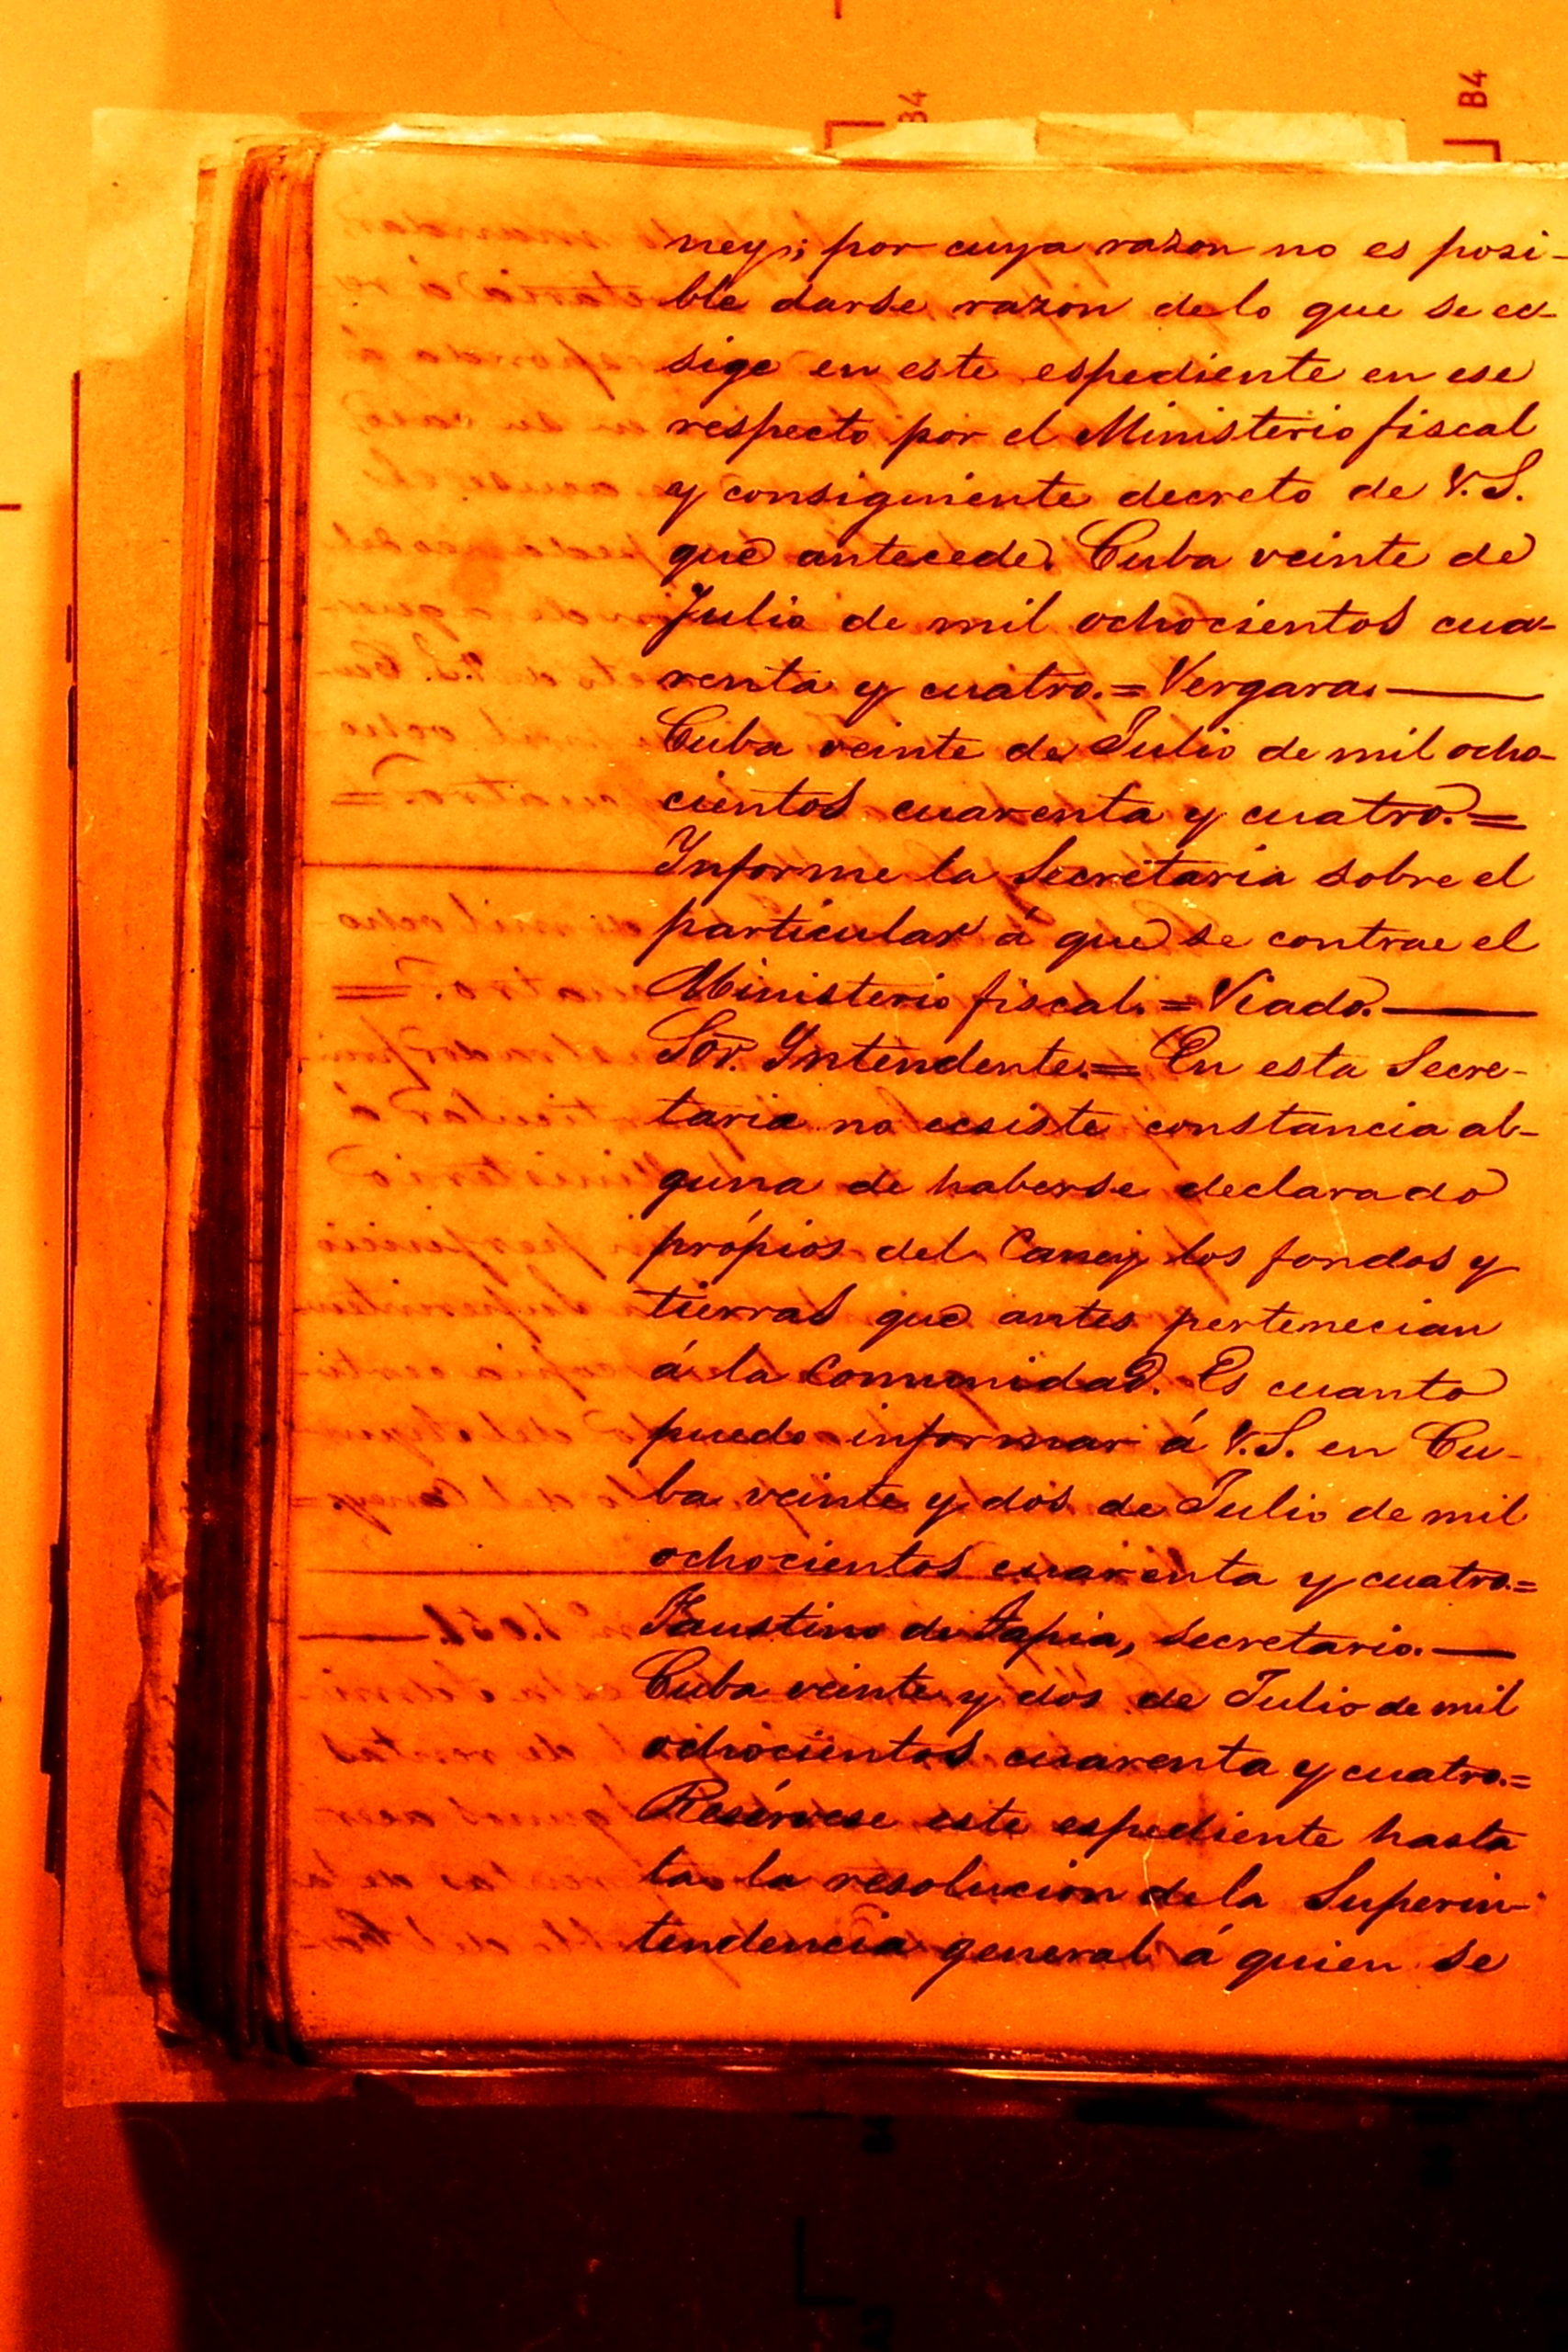 B4
B4
ney; por cuya razon no es posi-
ble darse razon de lo que se ec-
sige en este espediente en ese
respecto por el Ministerio fiscal
y consiguiente decreto de V.S.
que antecede. Cuba veinte de
Julio de mil ochocientos cua-
renta y cuatro.= Vergara.
Cuba veinte de Julio de mil ocho-
cientos cuarenta y cuatro.=
Informe la Secretaria sobre el
particular á que se contrae el
Ministerio fiscal.= Viado.
Sor. Intendente.= En esta Secre-
taria no ecsiste constancia al-
guna de haberse declarado
própios del Caney los fondos y
tierras que antes pertenecian
á la Comunidad. Es cuanto
puedo informar á V.S. en Cu-
ba veinte y dos de Julio de mil
ochocientos cuarenta y cuatro.=
Faustino de Tapia, secretario.
Cuba veinte y dos de Julio de mil
ochocientos cuarenta y cuatro.=
Resérvese este espediente hasta
tas la resolucion de la Superin-
tendencia general á quien se